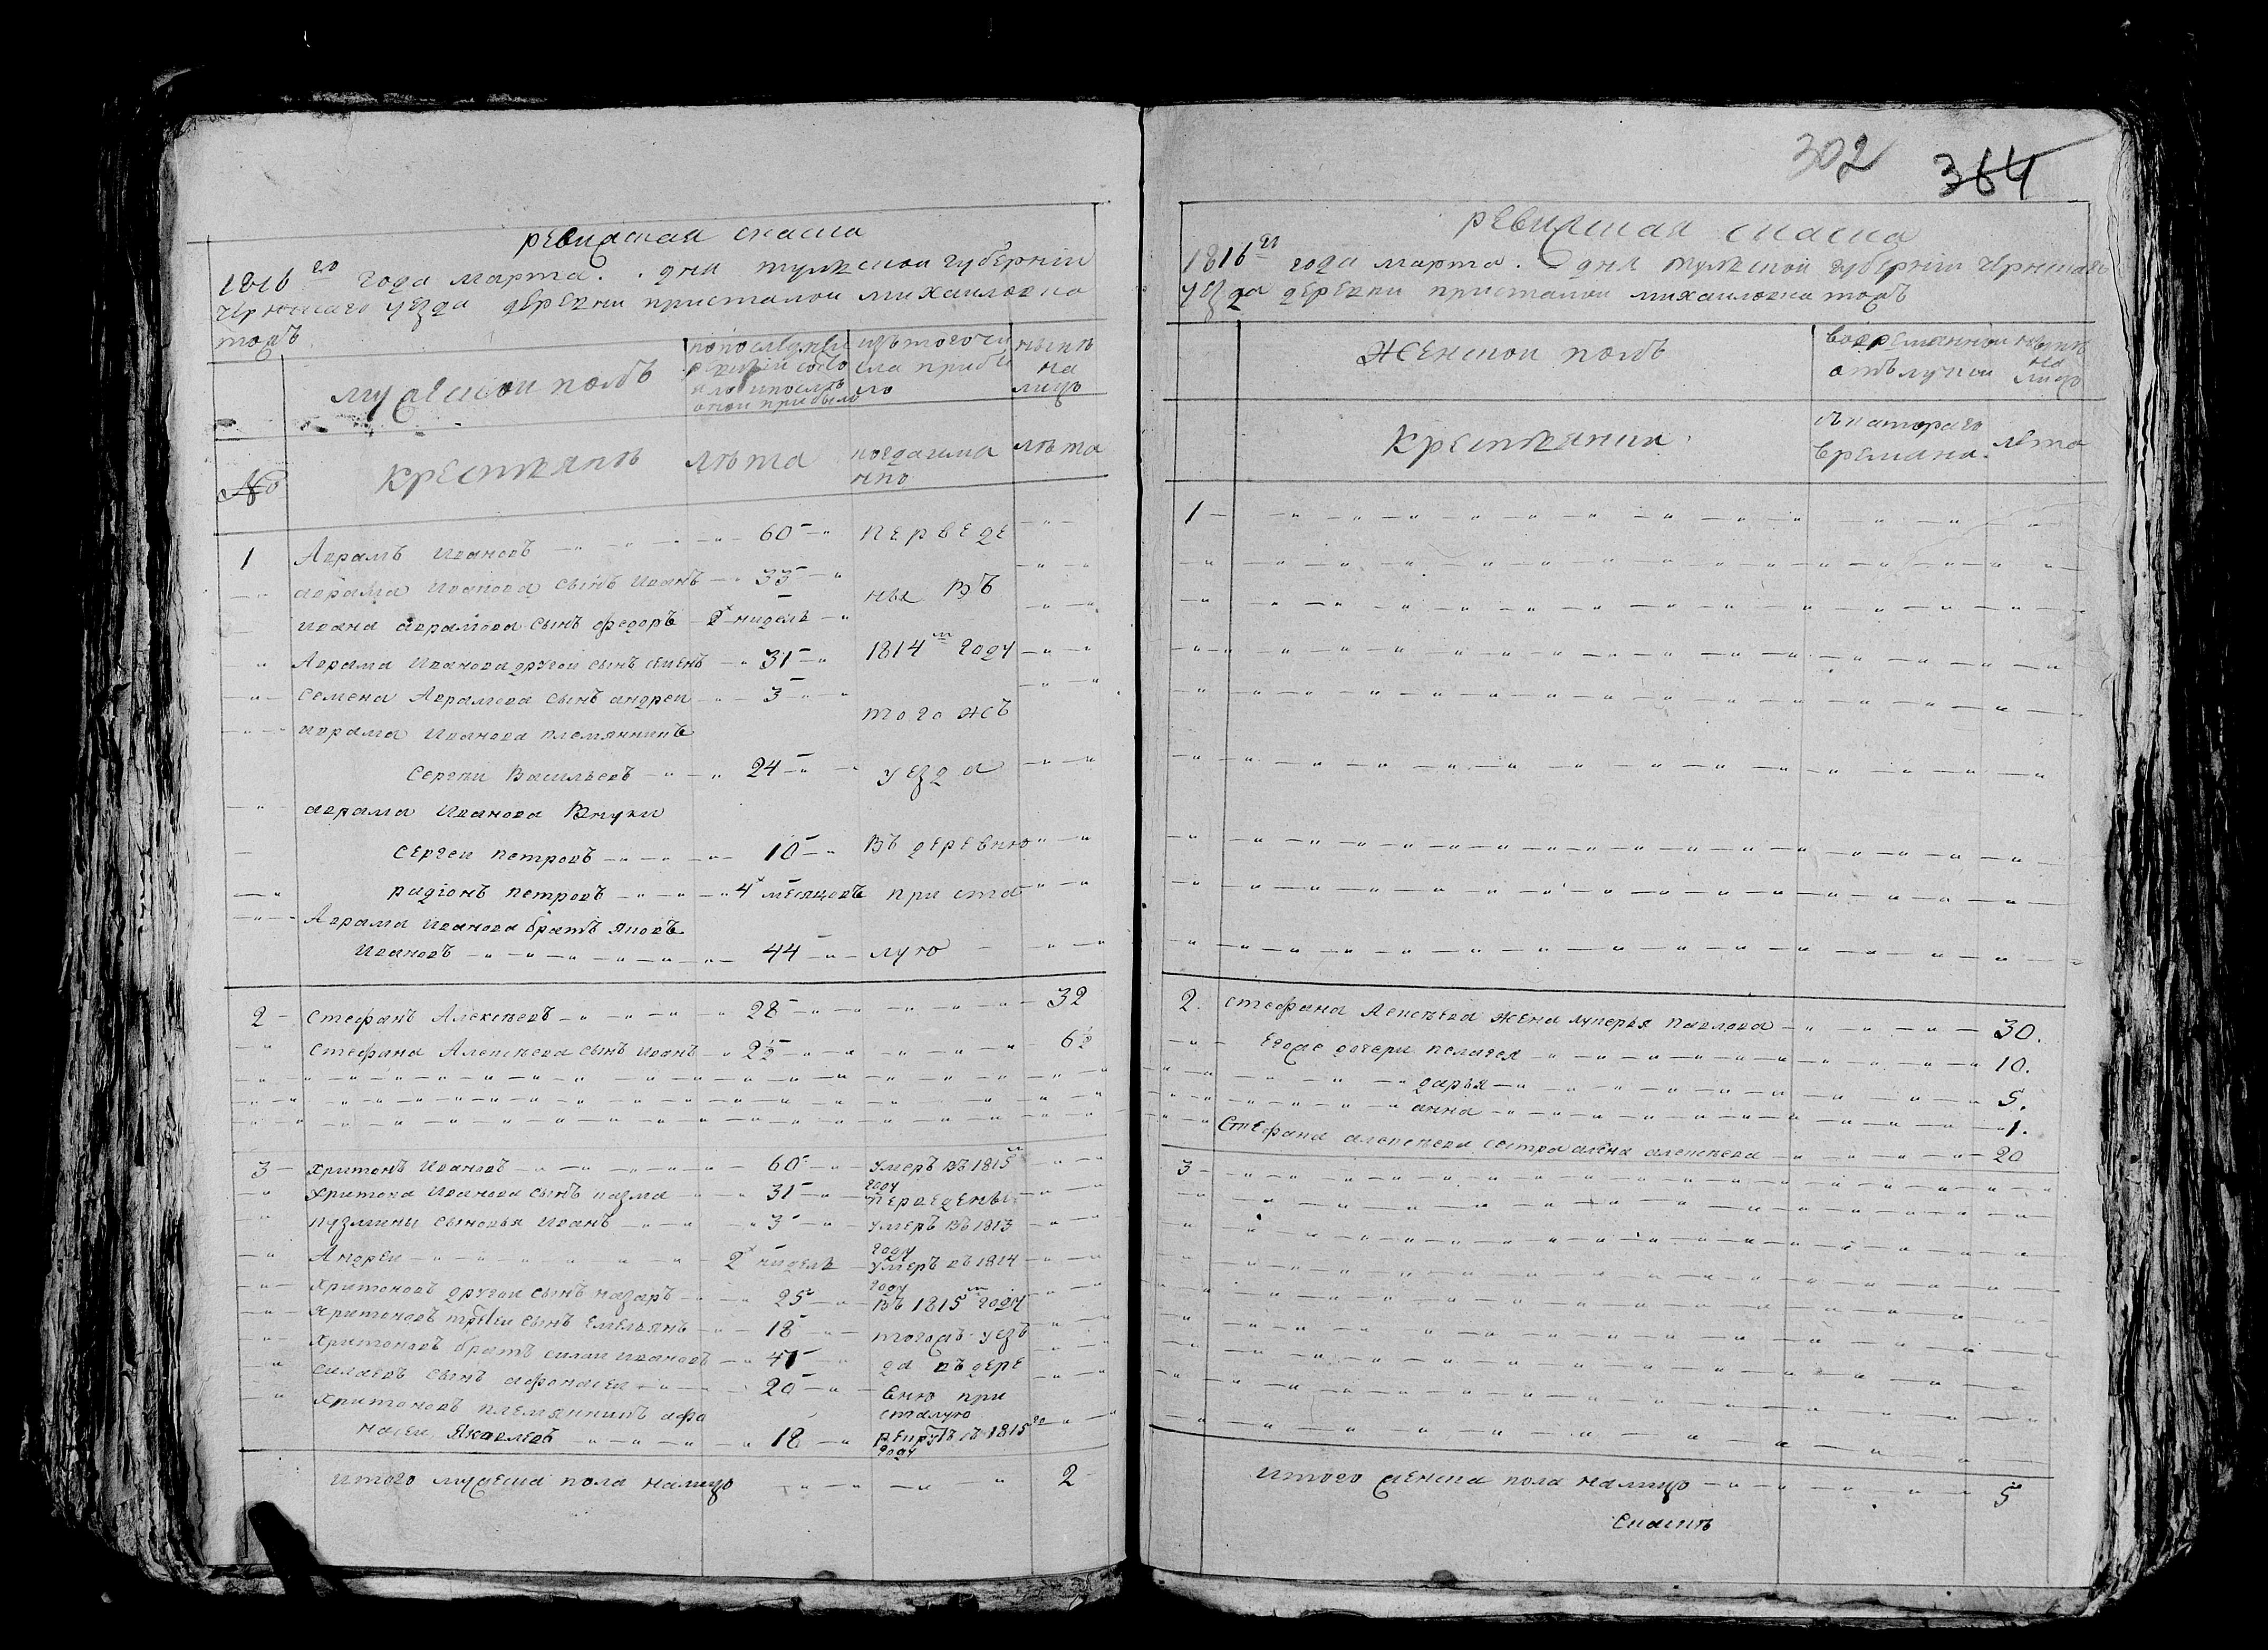 ревижская скаска
1816го года марта . . дня тульской губерній
чернскаго уезда деревни присталои михаиловка
тожъ
мужескои полъ
по последней
ревизіи состо
яло и послѣ
онои прибыло
изъ того чи
сла прибы
ло
нынѣ
на
лицо
№
крестьянѣ
лѣта
когда имя
нно
лѣта
1 Аврамъ Ивановъ 60 перведе
аврама Иванова сынъ Иванъ 33
ны въ
Ивана аврамова сынъ федоръ 2х нидель
Аврама Иванова другои сынъ семенъ 31 1814м году
Семена Аврамова сынъ андреи 3
того жъ
аврама Иванова племянникъ
Сергеи Васильевъ 24 уезда
аврама Иванова Внуки
Сергеи петровъ 10 Въ деревню
радіонъ петровъ 4х месяцовъ приста
Аврама Иванова братъ яковъ
Ивановъ 44 лую
2 Стефанъ Алексѣевъ 28 32
Стефана Алексѣева сынъ Иванъ 2½ 6½
3 Харитонъ Ивановъ 60 умеръ въ 1815м
году
Харитона Иванова сынъ казма 31 переведены
кузмины сыновья Иванъ 3 умеръ въ 1813
году
Андреи 2х нидель умеръ въ 1814
году
Харитоновъ другои сынъ назаръ 25 въ 1815м году
Харитоновъ третеи сынъ емельянъ 18 тогожъ уез
Харитоновъ братъ силаи Ивановъ 41 да въ дере
Силаевъ сынъ афонасеи 20 вню при
сталую
Харитоновъ племянникъ афо
насеи Яковлевъ 18 рекрутъ въ 1815го
году
итого мужеска пола налицо 2
302 364
ревижская скаска
1816го года марта . дня тульской губерніи чернскаго
уезда деревни присталои михаиловка тожъ
женскои полъ
во временнои
отълучки
нынѣ
на
лицо
крестьянки
съ катораго
времяни
лѣта
1
2. Стефана Алексѣева жена лукерья павлова 30.
Егоже дочери пелагея 10.
дарья 5.
анна 1.
Стефана алексѣева сестра алена алексѣева 20
3
итого женска пола налицо 5
Скаскѣ